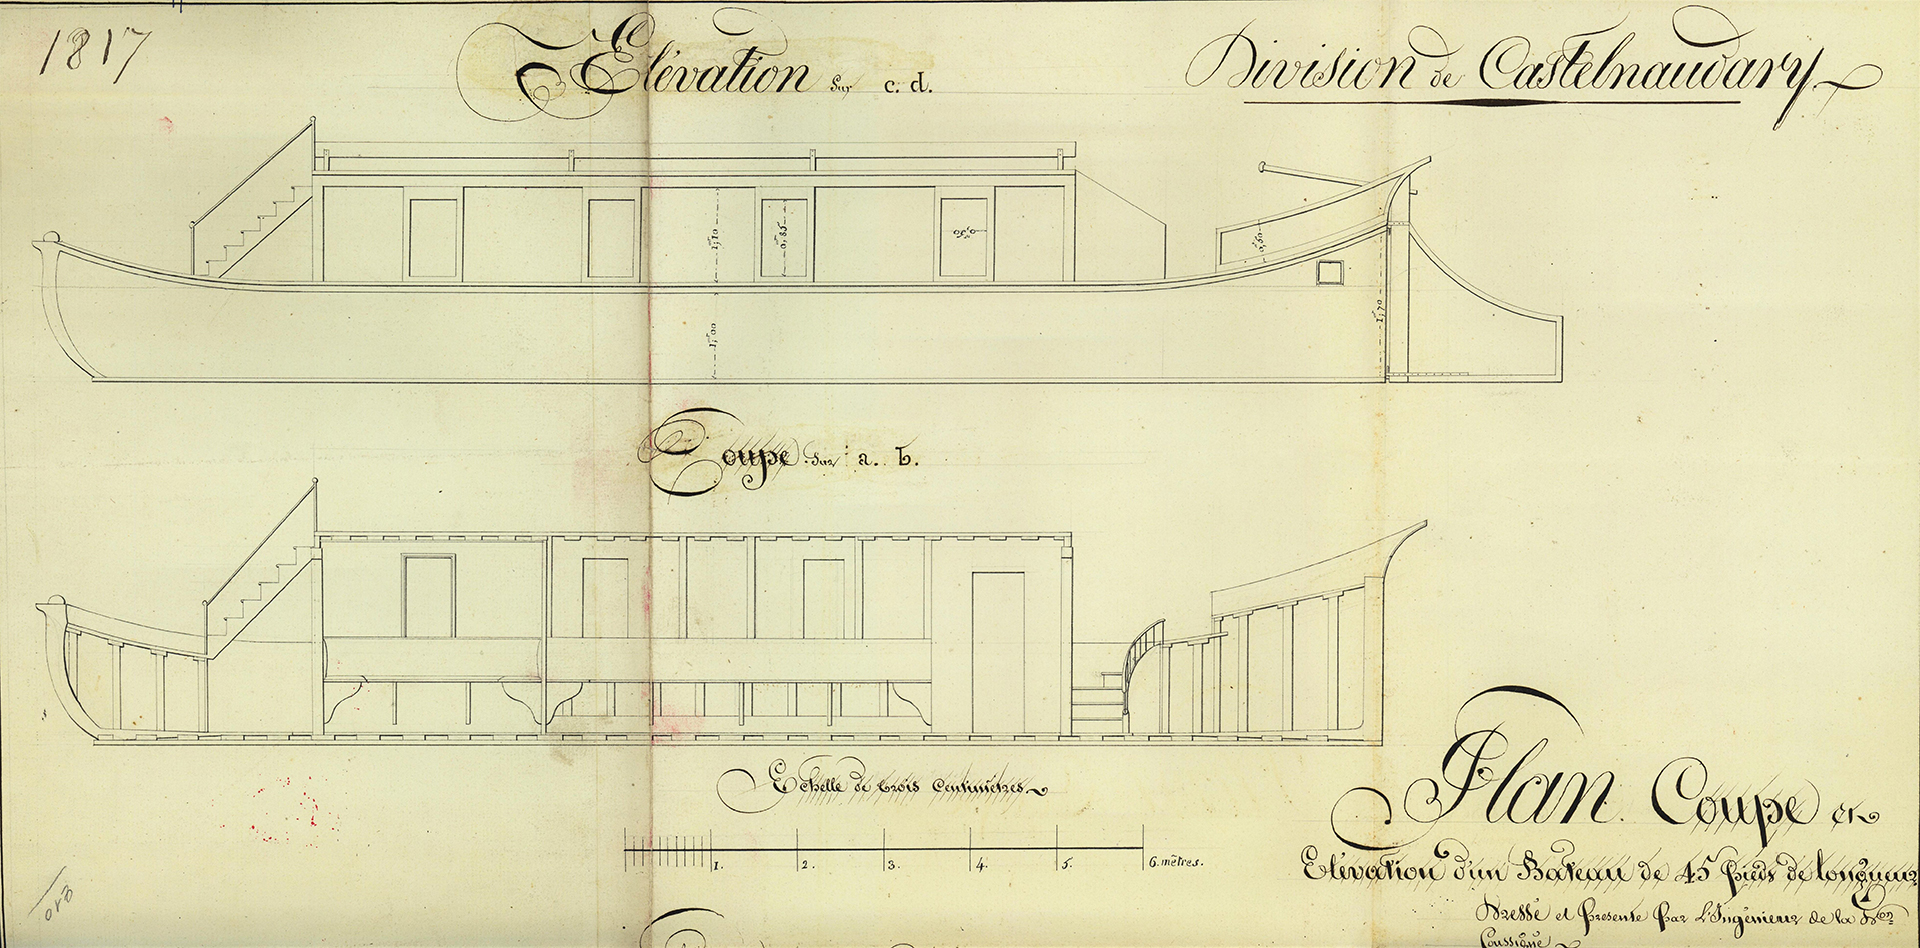 1817
Elévation sur c. d.
Division de Castelnaudary
1,m10
0,m85
0,m36
0,m50
1,m00
1,m70
Coupe sur a. b.
Echelle de trois Centimètres
1. 2. 3. 4. 5. 6. mètres.
Plan. Coupe et
Elévation d'un Bateau de 45 pieds de longueur
Dressé et Présenté par l'Ingénieur de la Don